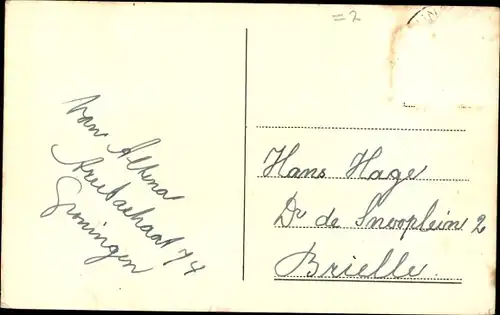 =2
van Altena
Arubastraat 74
Groningen
Hans Hage
Dr de Snooplein 2
Brielle.